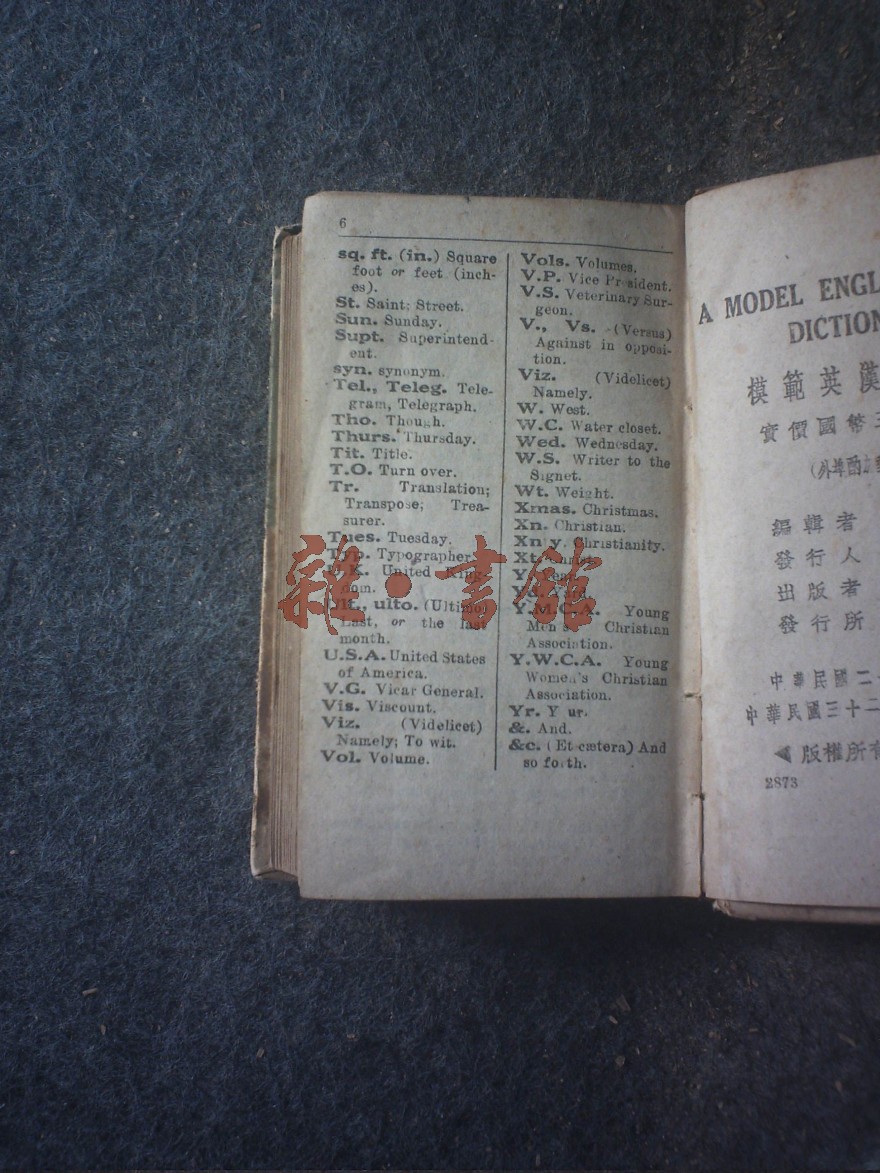 6
sq. ft. (in.) Square
foot or feet (inch-
es).
St. Saint; Street.
Sun. Sunday.
Supt. Superintend-
ent.
syn. synonym.
Tel., Teleg. Tele-
gram, Telegraph.
Tho. Though.
Thurs. Thursday.
Tit. Title.
T.O. Turn over.
Tr. Translation;
Transpose; Trea-
surer.
Tues. Tuesday.
Typ. Typographer.
U.K. United King-
dom.
Ult., ulto. (Ultimo)
Last, or the last
month.
U.S.A. United States
of America.
V.G. Vicar General.
Vis. Viscount.
Viz. (Videlicet)
Namely; To wit.
Vol. Volume.
Vols. Volumes.
V.P. Vice President.
V.S. Veterinary Sur-
geon.
V., Vs. (Versus)
Against in opposi-
tion.
Viz. (Videlicet)
Namely.
W. West.
W.C. Water closet.
Wed. Wednesday.
W.S. Writer to the
Signet.
Wt. Weight.
Xmas. Christmas.
Xn. Christian.
Xn'y. Christianity.
Xt. Christ.
Y. Year.
Yd. Yard.
Y.M.C.A. Young
Men's Christian
Association.
Y.W.C.A. Young
Women's Christian
Association.
Yr. Y ur.
&. And.
&c. (Et cætera) And
so forth.
雜·書館
A MODEL ENGL
DICTION
模範英漢
實價國幣
編輯者
發行人
出版者
發行所
中華民國二
中華民國三十二
版權所有
2873